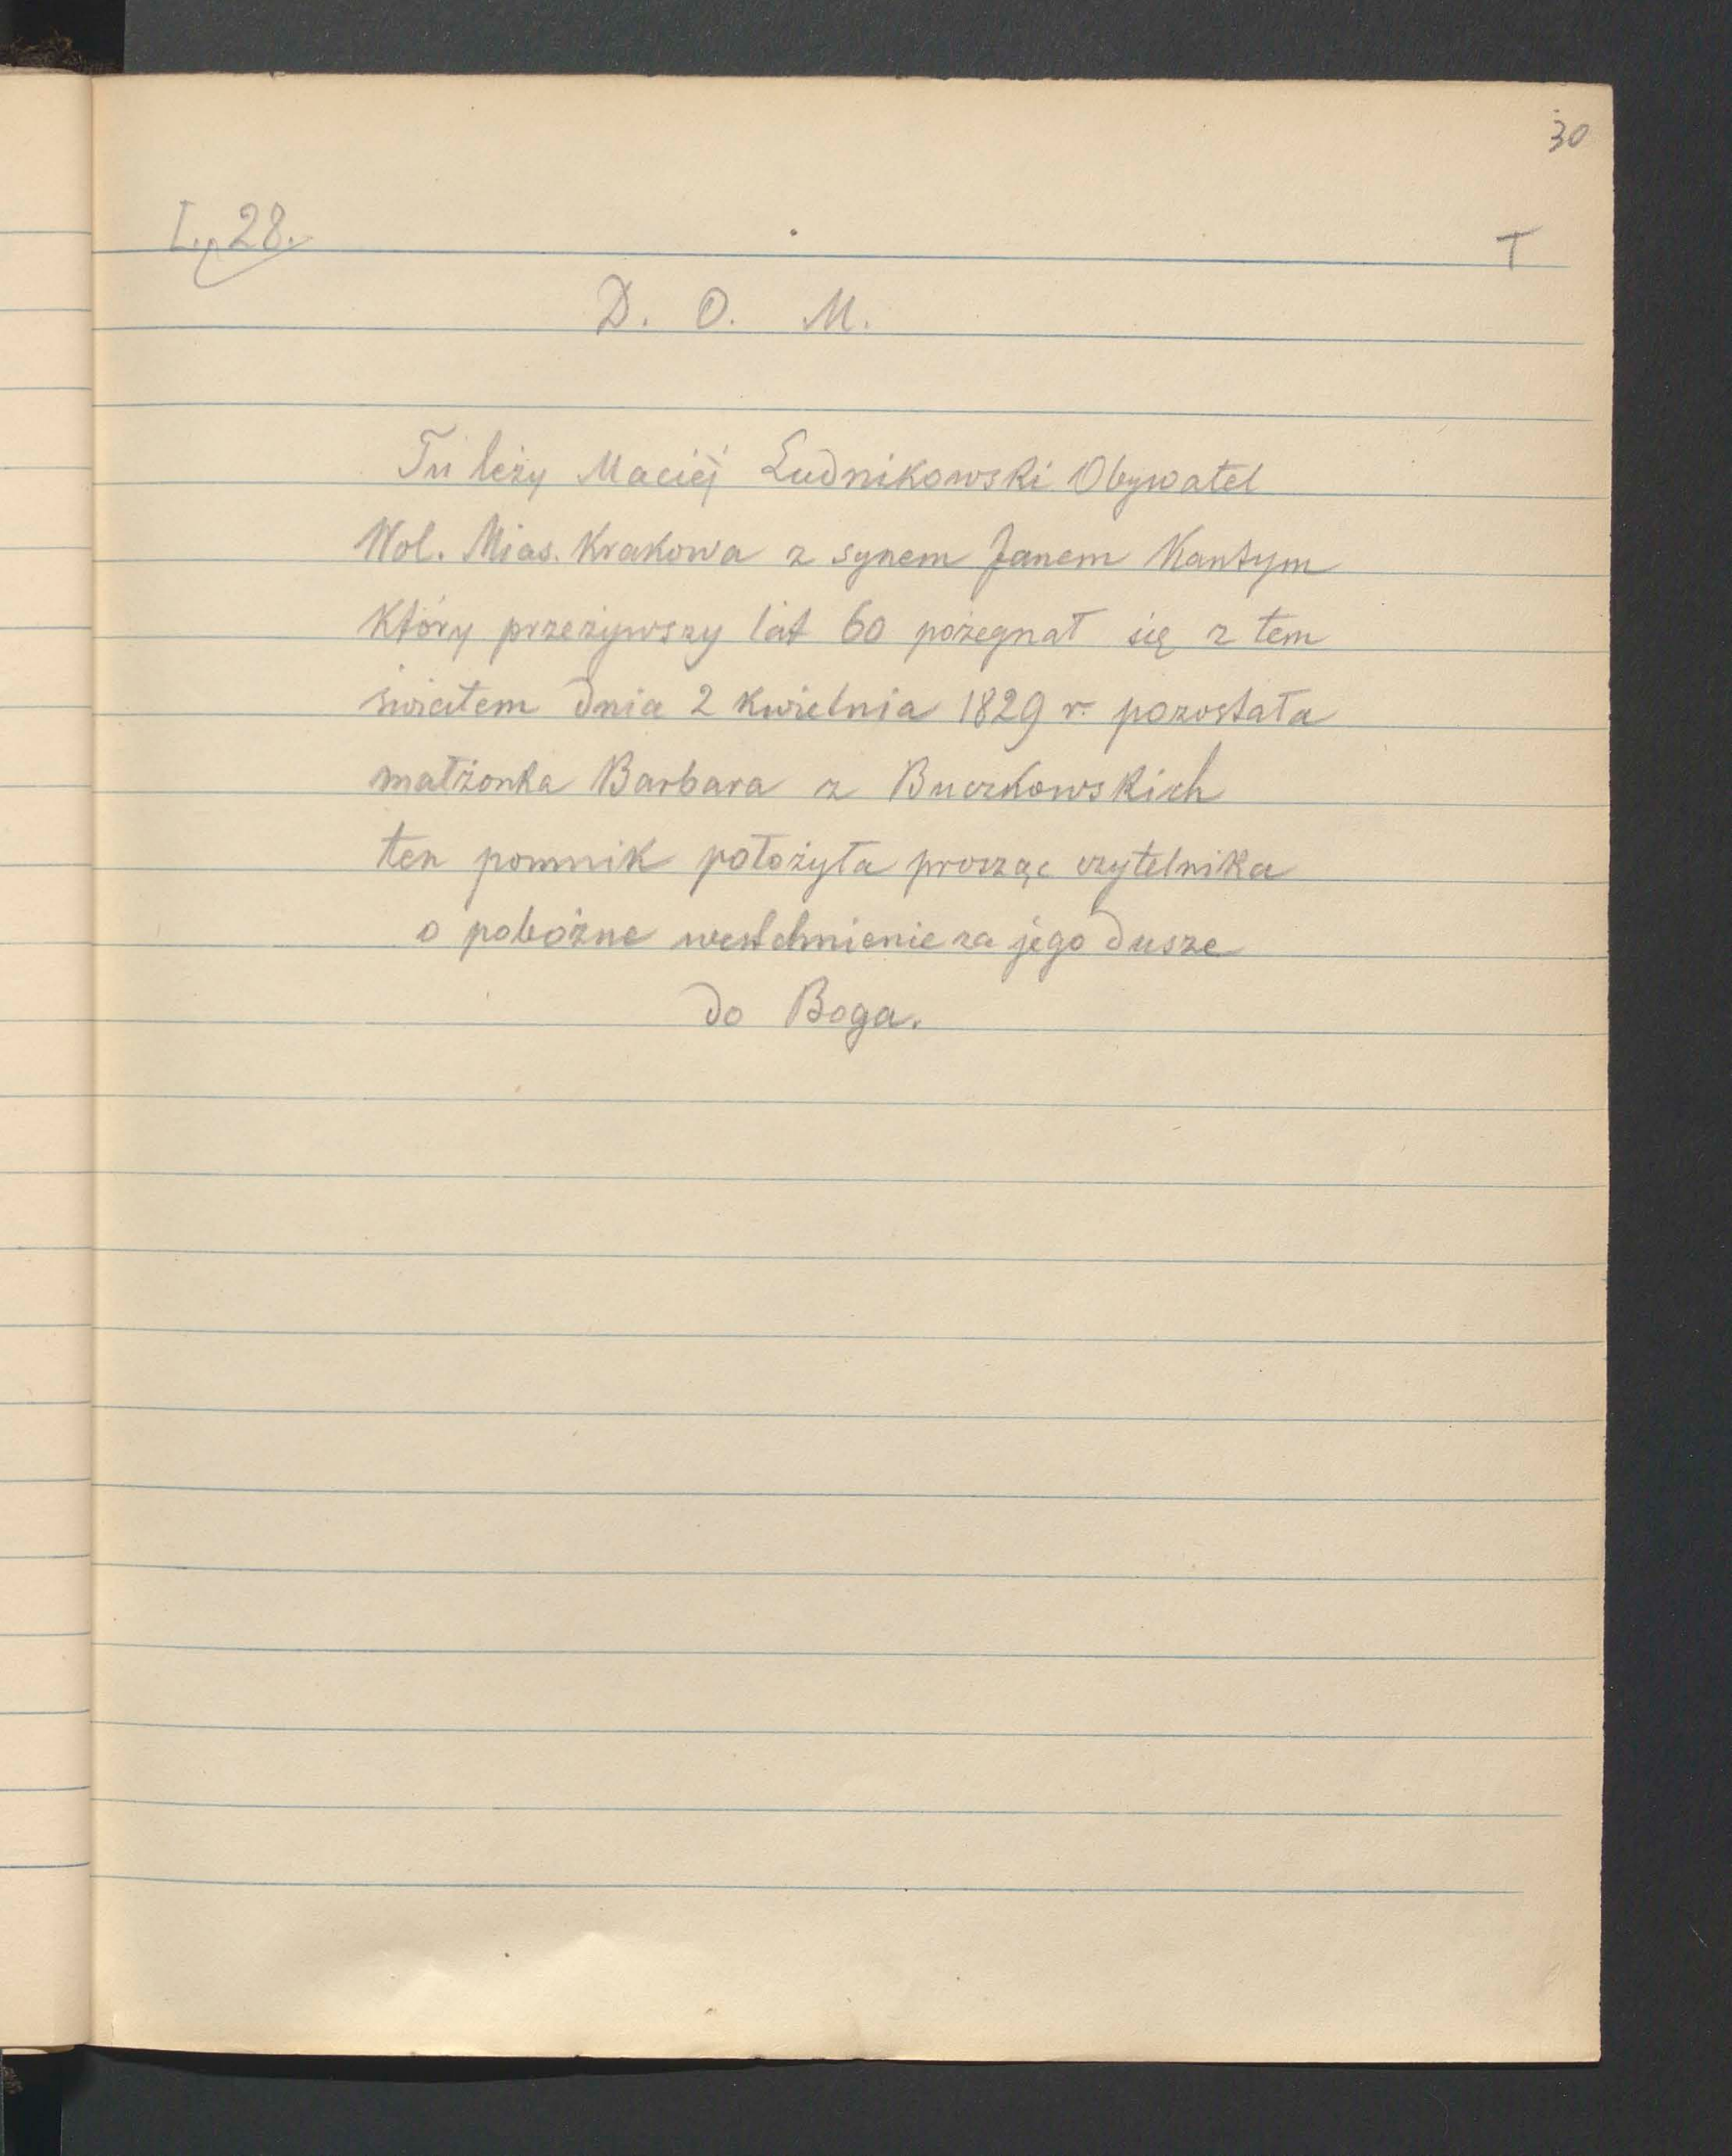 30
L. 28.
T
D. O. M.
Tu leży Maciéj Ludnikowski Obywatel
Wol. Mias. Krakowa z synem Janem Kantym
który przeżywszy lat 60 pożegnał się z tem
światem dnia 2 kwietnia 1829 r. pozostała
małżonka Barbara z Buczkowskich
ten pomnik położyła prosząc czytelnika
o pobożne westchnienie za jego dusze
do Boga.